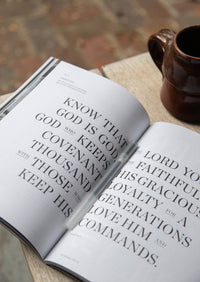 KNOW THAT
GOD IS GOD
GOD WHO KEEPS
COVENANT
THOUSAND
WITH THOSE
KEEP HIS
LORD YO
FAITHFUL
HIS GRACIOUS
LOYALTY
GENERATIONS
LOVE HIM AND
COMMANDS.